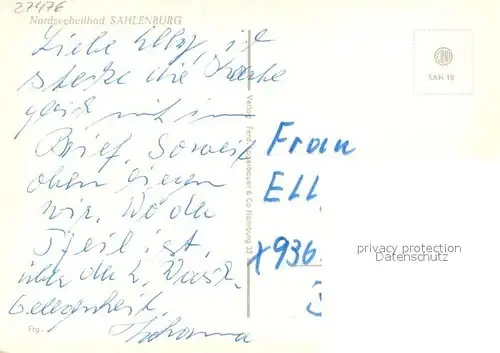 27476
Nordseeheilbad SAHLENBURG
Liebe Elly, ich
stecke die Karte
gleich mit im
Brief. Soweit
oben liegen
wir. Wo der
Pfeil ist,
über der 2.
Gelegenheit.
Johanna
Frg.
Verlag Ferd. Lagerbauer & Co Hamburg 33
SAH 18
Frau
ELL
X936
privacy protection
Datenschutz